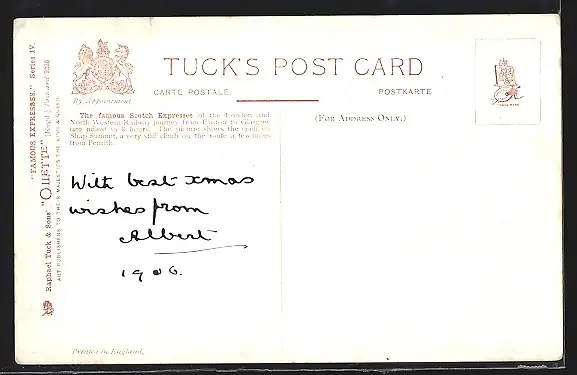 TUCK'S POST CARD
CARTE POSTALE
POSTKARTE
By Appointment
(FOR ADDRESS ONLY.)
The famous Scotch Expresses of the London and
North Western Railway journey from Euston to Glasgow
miles) in 8 hours. The picture shows the train on
Shap Summit, a very stiff climb on the route a few miles
from Penrith.
With best xmas
wishes from
Albert
1906.
"FAMOUS EXPRESSES." Series IV.
Raphael Tuck & Sons' "OILETTE" [Regd.] Postcard
ART PUBLISHERS TO THEIR MAJESTIES THE KING & QUEEN
TRADE MARK
Printed in England.